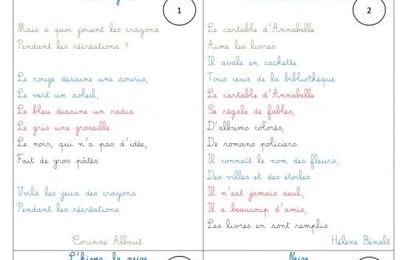 1
Mais à quoi jouent les crayons
Pendant les récréations ?
Le rouge dessine une souris,
Le vert un soleil,
Le bleu dessine un radis
Le gris une groseille
Le noir, qui n'a pas d'idée,
Fait de gros pâtés
Voilà les jeux des crayons
Pendant les récréations.
Corinne Albaut
2
Le cartable d'Annabelle
Aime les livres
Il avale en cachette
Tous ceux de la bibliothèque.
Le cartable d'Annabelle
Se régale de fables,
D'albums colorés,
De romans policiers.
Il connaît le nom des fleurs,
Des villes et des étoiles.
Il n'est jamais seul,
Il a beaucoup d'amis,
Les livres en sont remplis.
Hélène Bénalt
L'hiver, la neige
Neige